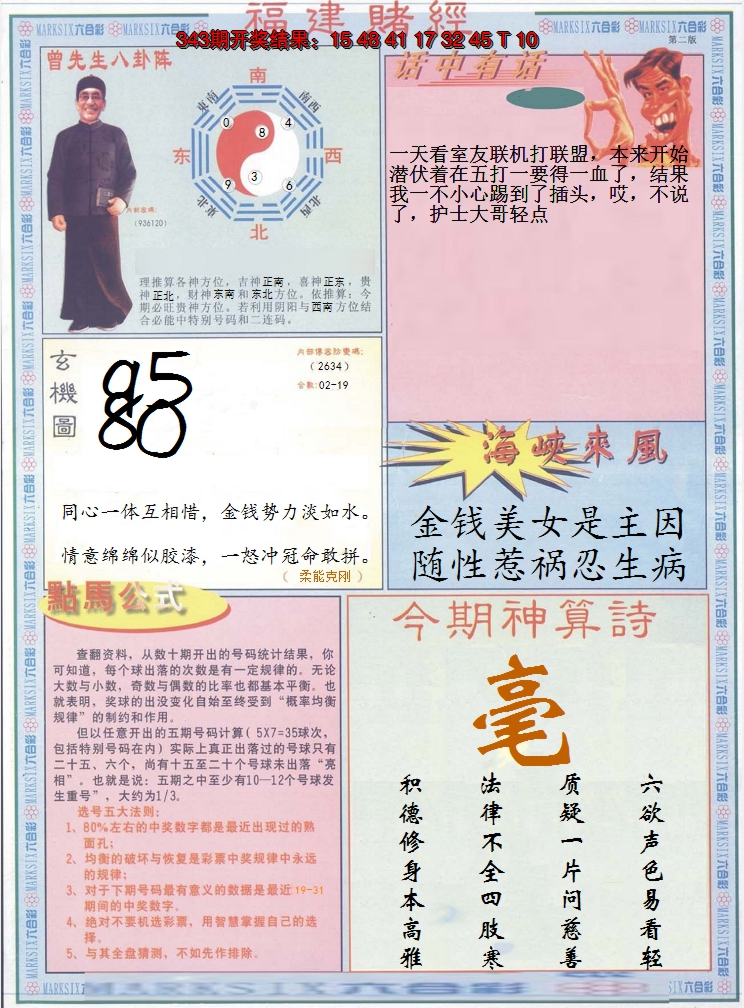 福建賭經
343期开奖结果：15 48 41 17 32 45 T 10
第二版
MARKSIX六合彩
曾先生八卦阵
南
东南
南西
东
西
東北
北西
北
0
8
4
9
3
6
內部密碼:
(936120)
理推算各神方位，吉神正南，喜神正东，贵
神正北，财神东南和东北方位。依推算：今
期必旺贵神方位。若利用阴阳与西南方位结
合必能中特别号码和二连码。
话中有话
一天看室友联机打联盟，本来开始
潜伏着在五打一要得一血了，结果
我一不小心踢到了插头，哎，不说
了，护士大哥轻点
玄機圖
95
80
(2634)
合数:02-19
同心一体互相惜，金钱势力淡如水。
情意绵绵似胶漆，一怒冲冠命敢拼。
（ 柔能克刚 ）
海峽來風
金钱美女是主因
随性惹祸忍生病
點馬公式
查翻资料，从数十期开出的号码统计结果，你
可知道，每个球出落的次数是有一定规律的。无论
大数与小数，奇数与偶数的比率也都基本平衡。也
就表明，奖球的出没变化自始至终受到“概率均衡
规律”的制约和作用。
但以任意开出的五期号码计算( 5X7=35球次，
包括特别号码在内) 实际上真正出落过的号球只有
二十五、六个，尚有十五至二十个号球未出落“亮
相”。也就是说：五期之中至少有10—12个号球发
生重号”，大约为1/3。
选号五大法则：
1、80%左右的中奖数字都是最近出现过的熟
面孔；
2、均衡的破坏与恢复是彩票中奖规律中永远
的规律；
3、对于下期号码最有意义的数据是最近19-31
期间的中奖数字。
4、绝对不要机选彩票，用智慧掌握自己的选
择。
5、与其全盘猜测，不如先作排除。
今期神算詩
毫
六欲声色易看轻
质疑一片问慈善
法律不全四肢寒
积德修身本高雅